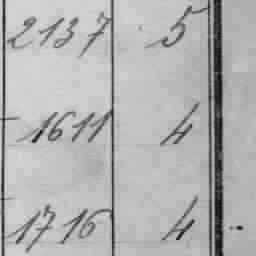 2137 5
1611 4
1716 4